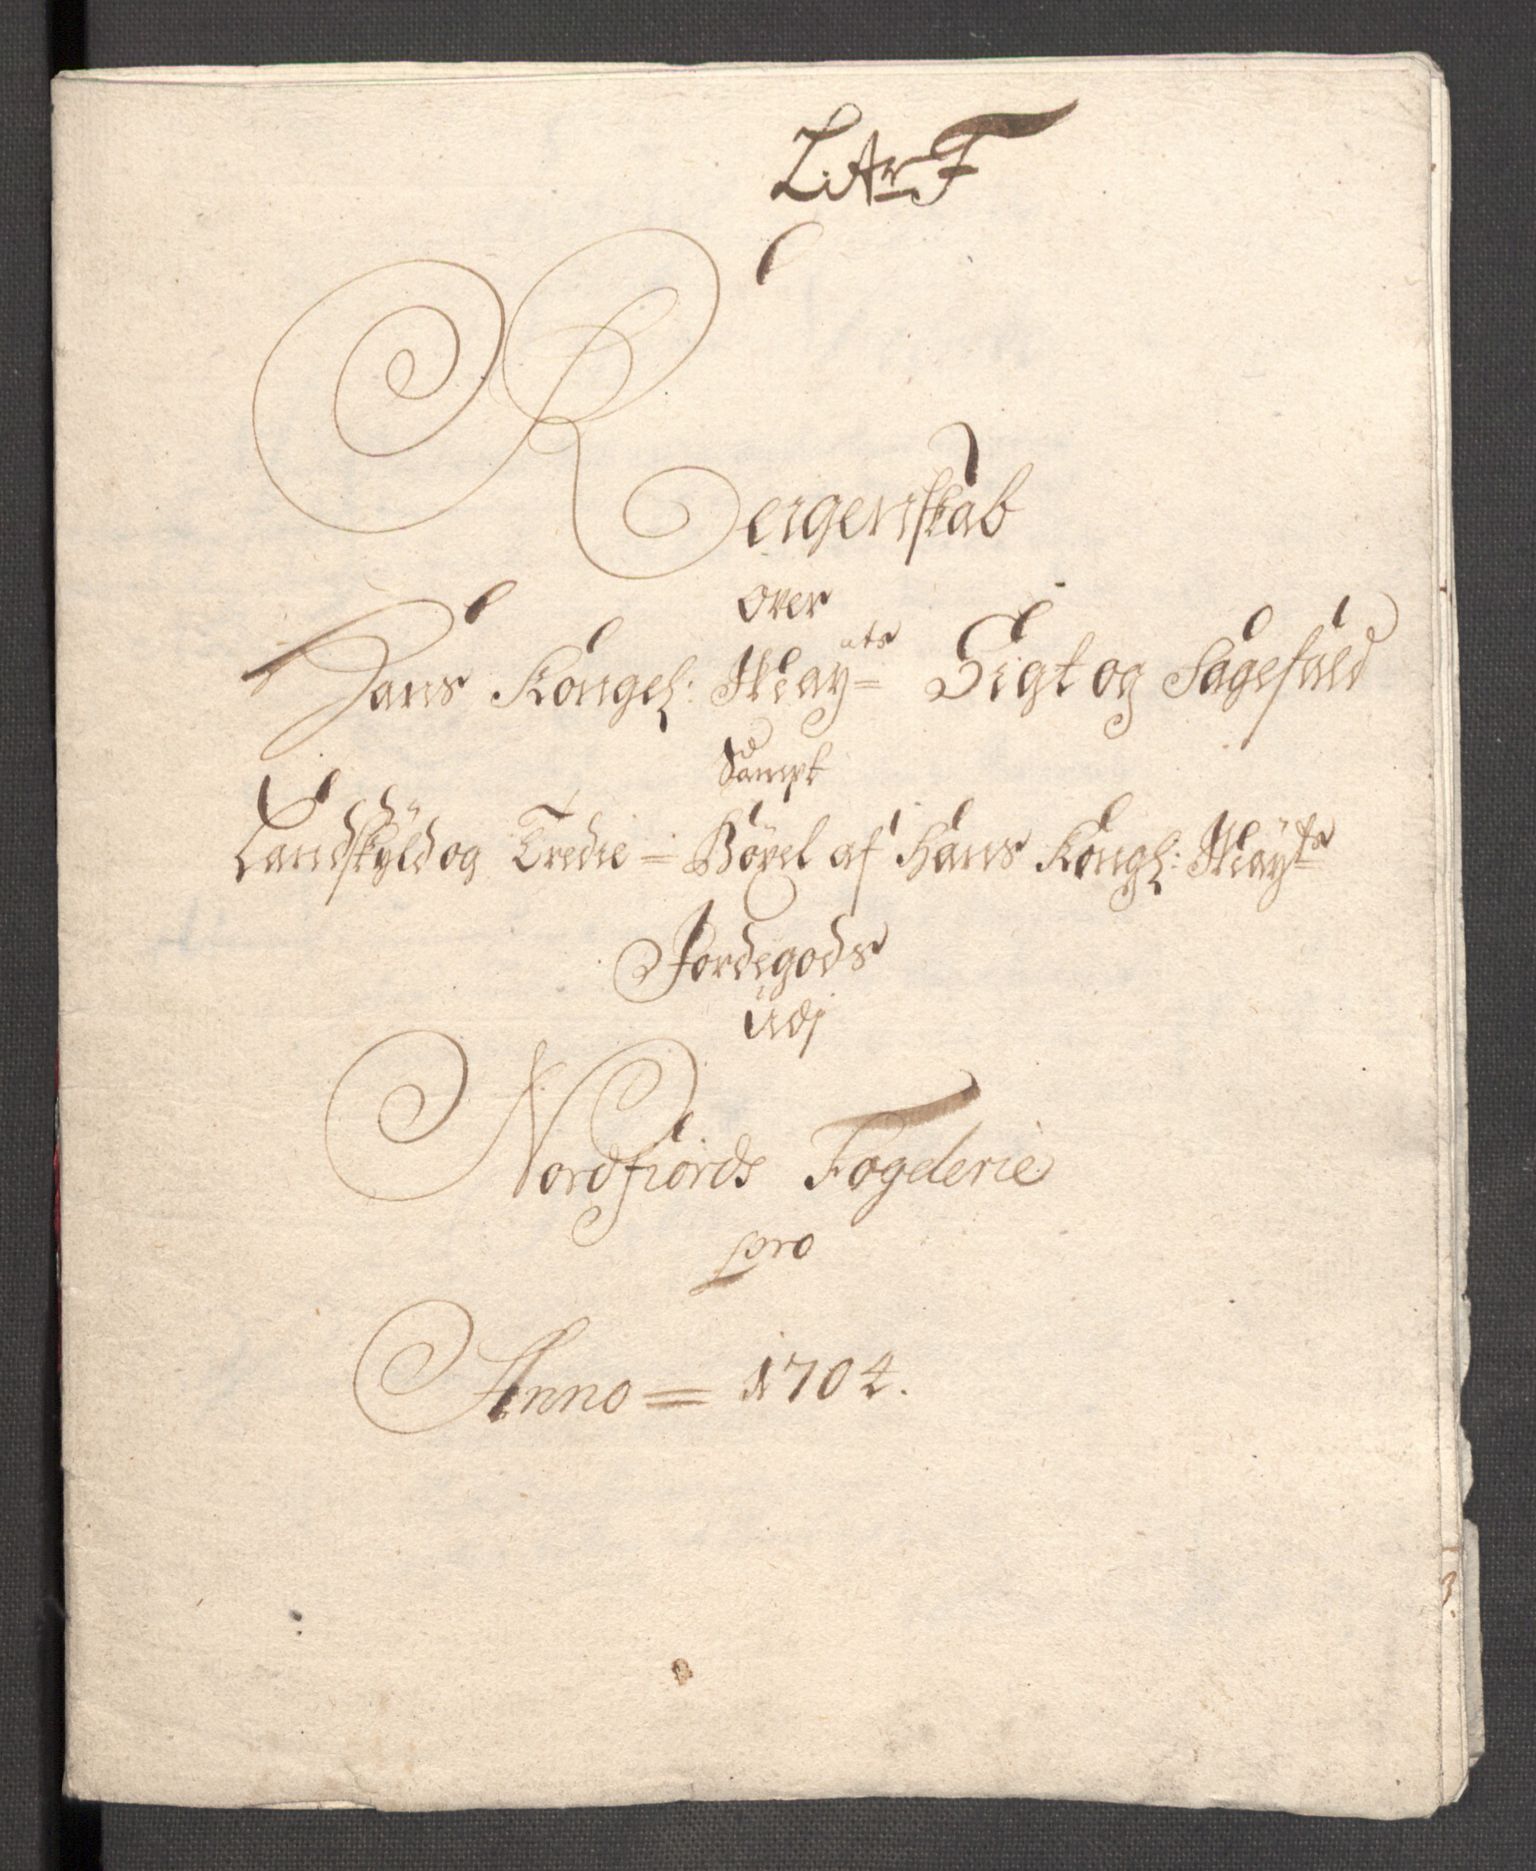 L: Ar F
Reigenskab
over
Hans Kongel: May=ts Sigt og Sagefald
Sampt
Landskÿld og Tredie = Bøxel af Hans Kongl: Maÿ=ts
Jordegods
Udj
Nordfiords Fogderie
pro
Anno = 1704.
3.